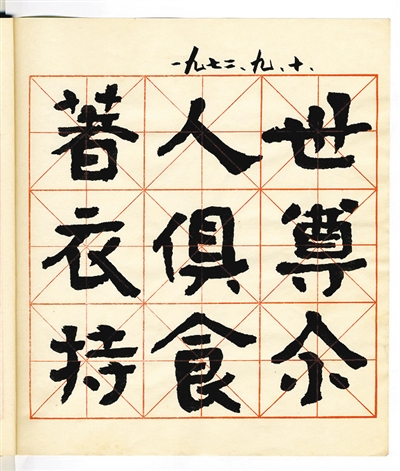 一九七二、九、十.
世尊尒
人俱食
著衣持